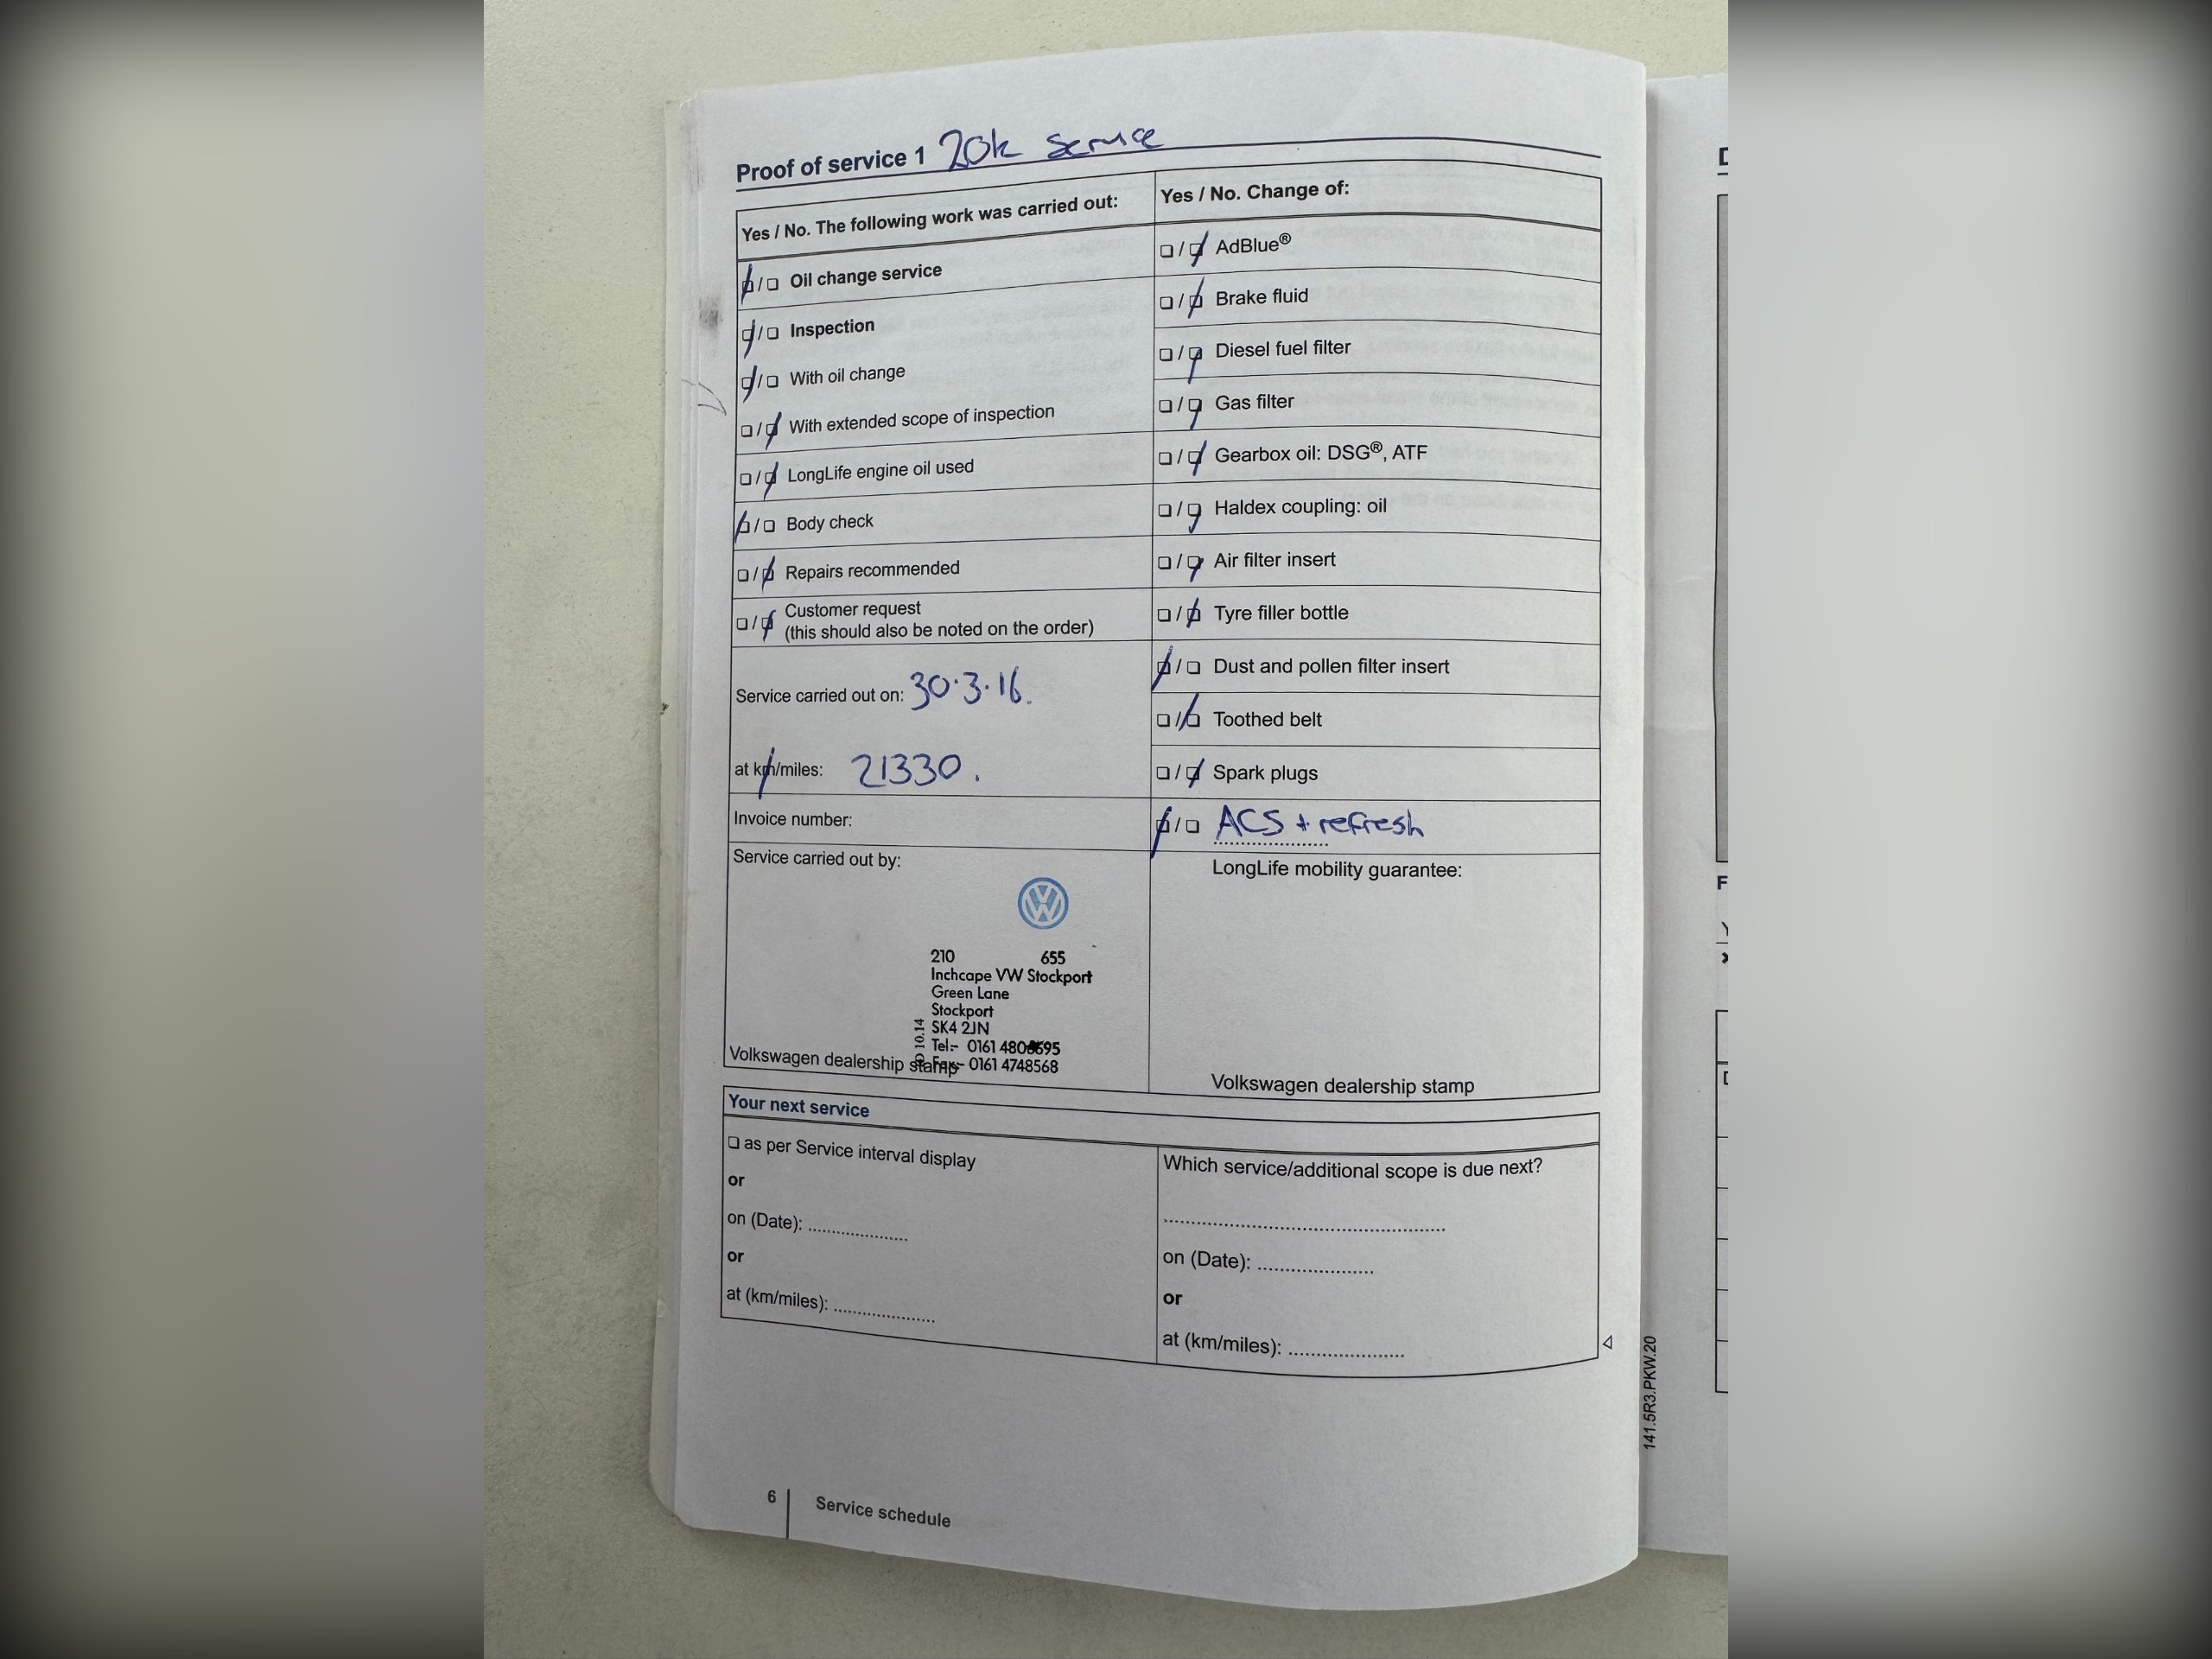 Proof of service 1 20k Service
Yes / No. The following work was carried out:
☑/☐ Oil change service
☑/☐ Inspection
☑/☐ With oil change
☐/☑ With extended scope of inspection
☐/☑ LongLife engine oil used
☑/☐ Body check
☐/☑ Repairs recommended
☐/☑ Customer request
(this should also be noted on the order)
Service carried out on: 30.3.16.
at km/miles: 21330.
Invoice number:
Service carried out by:
210 655
Inchcape VW Stockport
Green Lane
Stockport
SK4 2JN
Tel:- 0161
Fax:- 0161 4748568
10.14
Volkswagen dealership stamp
Yes / No. Change of:
☐/☑ AdBlue®
☐/☑ Brake fluid
☐/☑ Diesel fuel filter
☐/☑ Gas filter
☐/☑ Gearbox oil: DSG®, ATF
☐/☑ Haldex coupling: oil
☐/☑ Air filter insert
☐/☑ Tyre filler bottle
☑/☐ Dust and pollen filter insert
☐/☑ Toothed belt
☐/☑ Spark plugs
☑/☐ ACS + refresh
LongLife mobility guarantee:
Volkswagen dealership stamp
Your next service
☐ as per Service interval display
or
on (Date): ....................
or
at (km/miles): ....................
Which service/additional scope is due next?
..........................................................
on (Date): .......................
or
at (km/miles): .......................
141.5R3.PKW.20
6 Service schedule